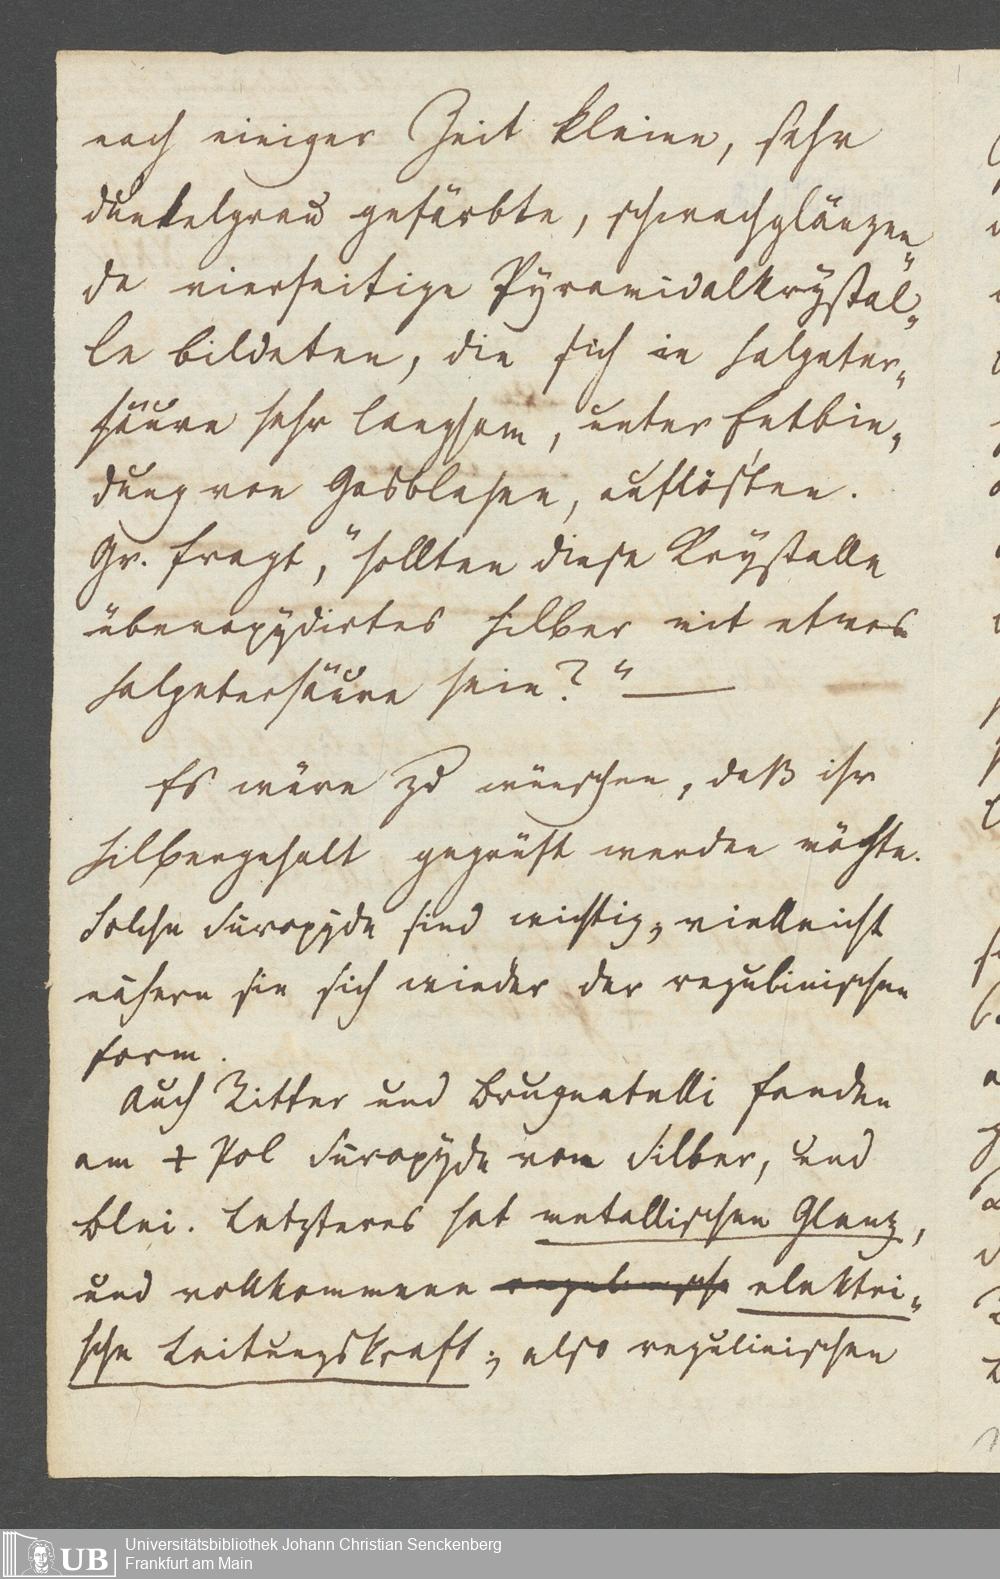 nach einiger Zeit kleine, sehr
dunkelgrau gefärbte, schwachglänzen„
de vierseitige Pyramidalkrystal„
le bildeten, die sich in Salpeter„
säure sehr langsam, unter Entbin„
dung von Gasblasen, auflösten.
Gr. fragt, "sollten diese Krystalle
überoxydirtes Silber mit etwas
Salpetersäure sein?" —
Es wäre zu wünschen, daß ihr
Silbergehalt geprüft werden möchte.
Solche Suroxyde sind wichtig; vielleicht
nähern sie sich wieder der regulinischen
Form.
Auch Ritter und Brugnatelli fanden
am + Pol Suroxyde von Silber, und
Blei. Letzteres hat metallischen Glanz,
und vollkommene regulinische elektri„
sche Leitungskraft; also regulinischen
Universitätsbibliothek Johann Christian Senckenberg
Frankfurt am Main
UB